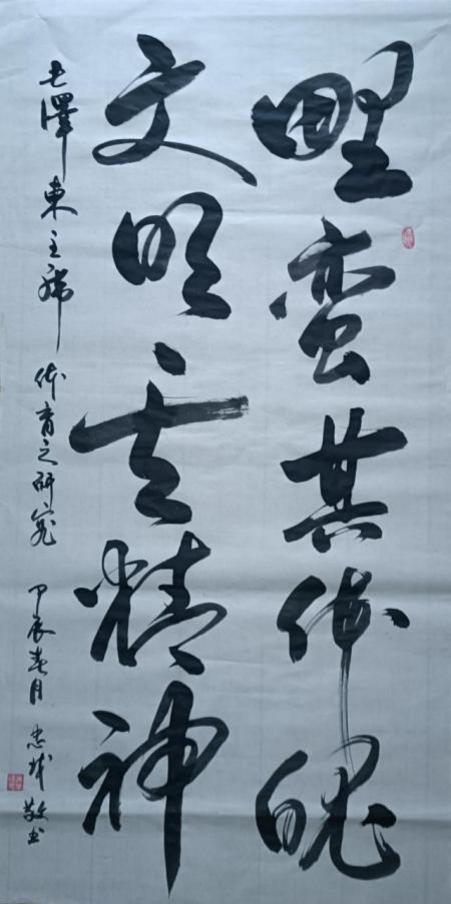 野蛮其体魄
文明其精神
毛澤東主席 体育之研究 甲辰春月 忠诚敬书